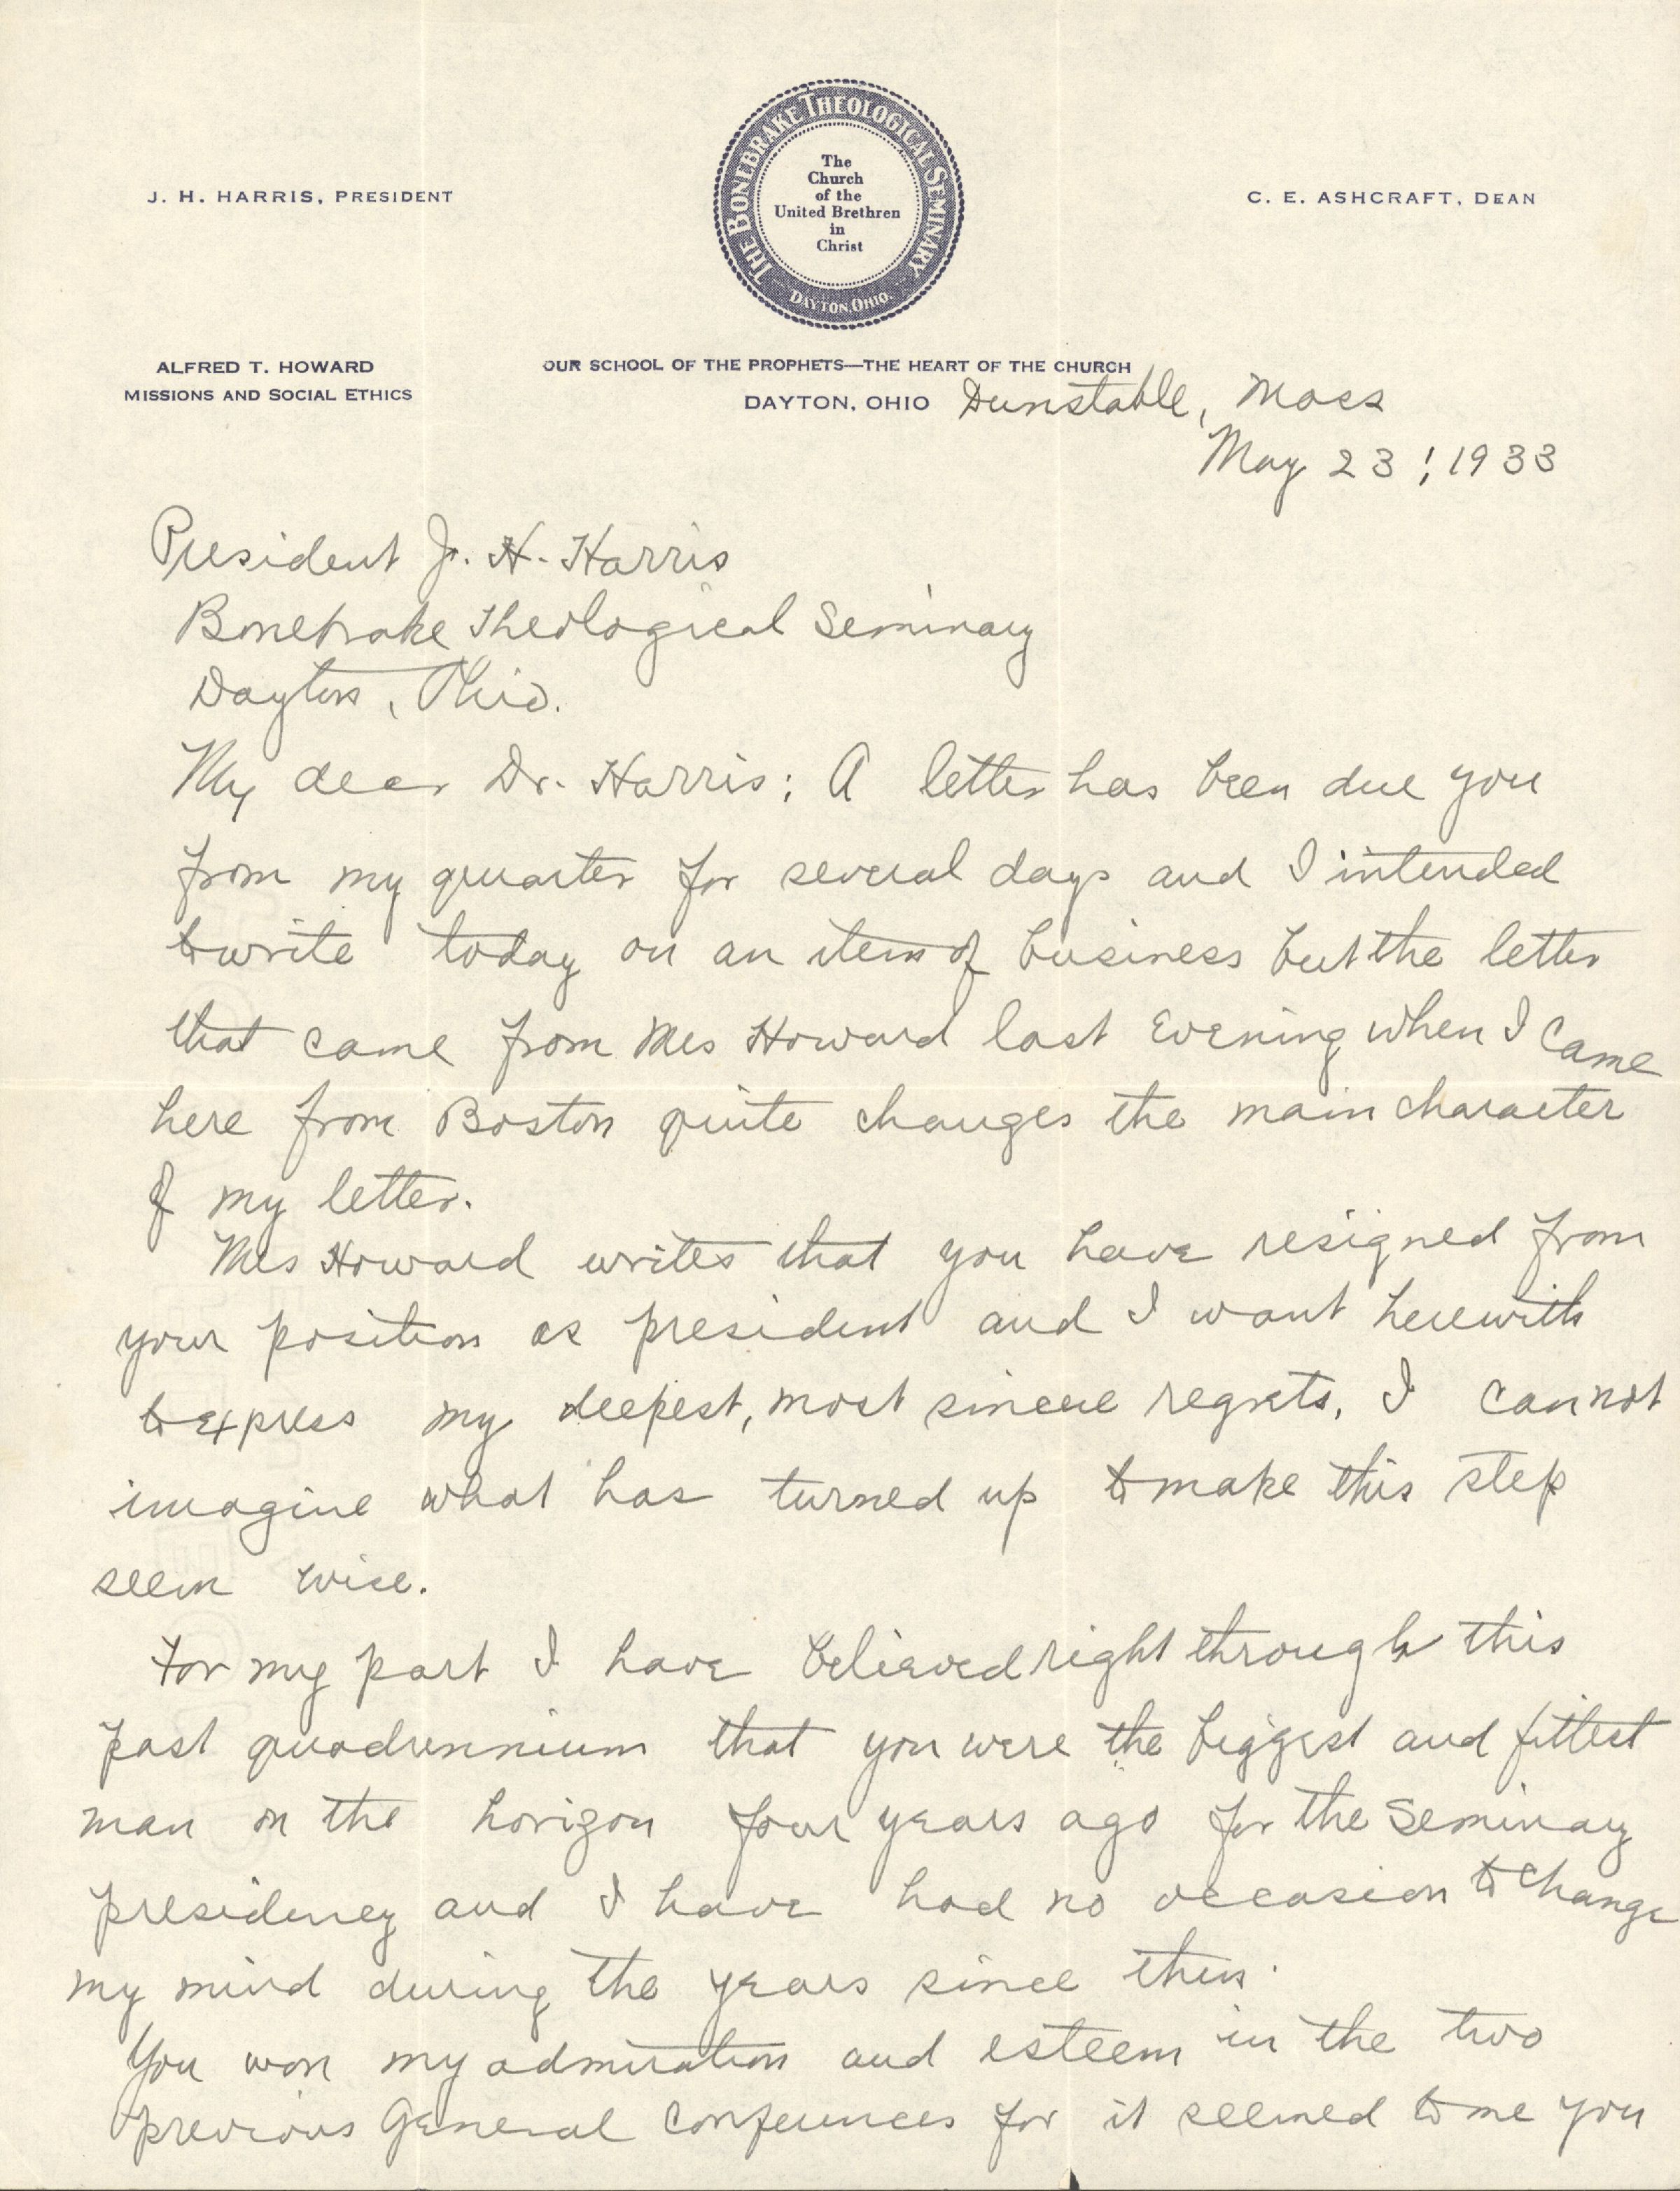 THE BONEBRAKE THEOLOGICAL SEMINARY
DAYTON, OHIO.
The
Church
of the
United Brethren
in
Christ
J. H. HARRIS, PRESIDENT
C. E. ASHCRAFT, DEAN
ALFRED T. HOWARD
MISSIONS AND SOCIAL ETHICS
OUR SCHOOL OF THE PROPHETS—THE HEART OF THE CHURCH
DAYTON, OHIO Dunstable, Mass
May 23, 1933
President J. H. Harris
Bonebrake Theological Seminary
Dayton, Ohio.
My dear Dr. Harris; A letter has been due you
from my quarter for several days and I intended
to write today on an item of business but the letter
that came from Mrs Howard last evening when I came
here from Boston quite changes the main character
of my letter.
Mrs Howard writes that you have resigned from
your position as president and I want herewith
to express my deepest, most sincere regrets. I cannot
imagine what has turned up to make this step
seem wise.
For my part I have believed right through this
past quadrennium that you were the biggest and fittest
man on the horizon four years ago for the Seminary
presidency and I have had no occasion to change
my mind during the years since then.
You won my admiration and esteem in the two
previous General Conferences for it seemed to me you